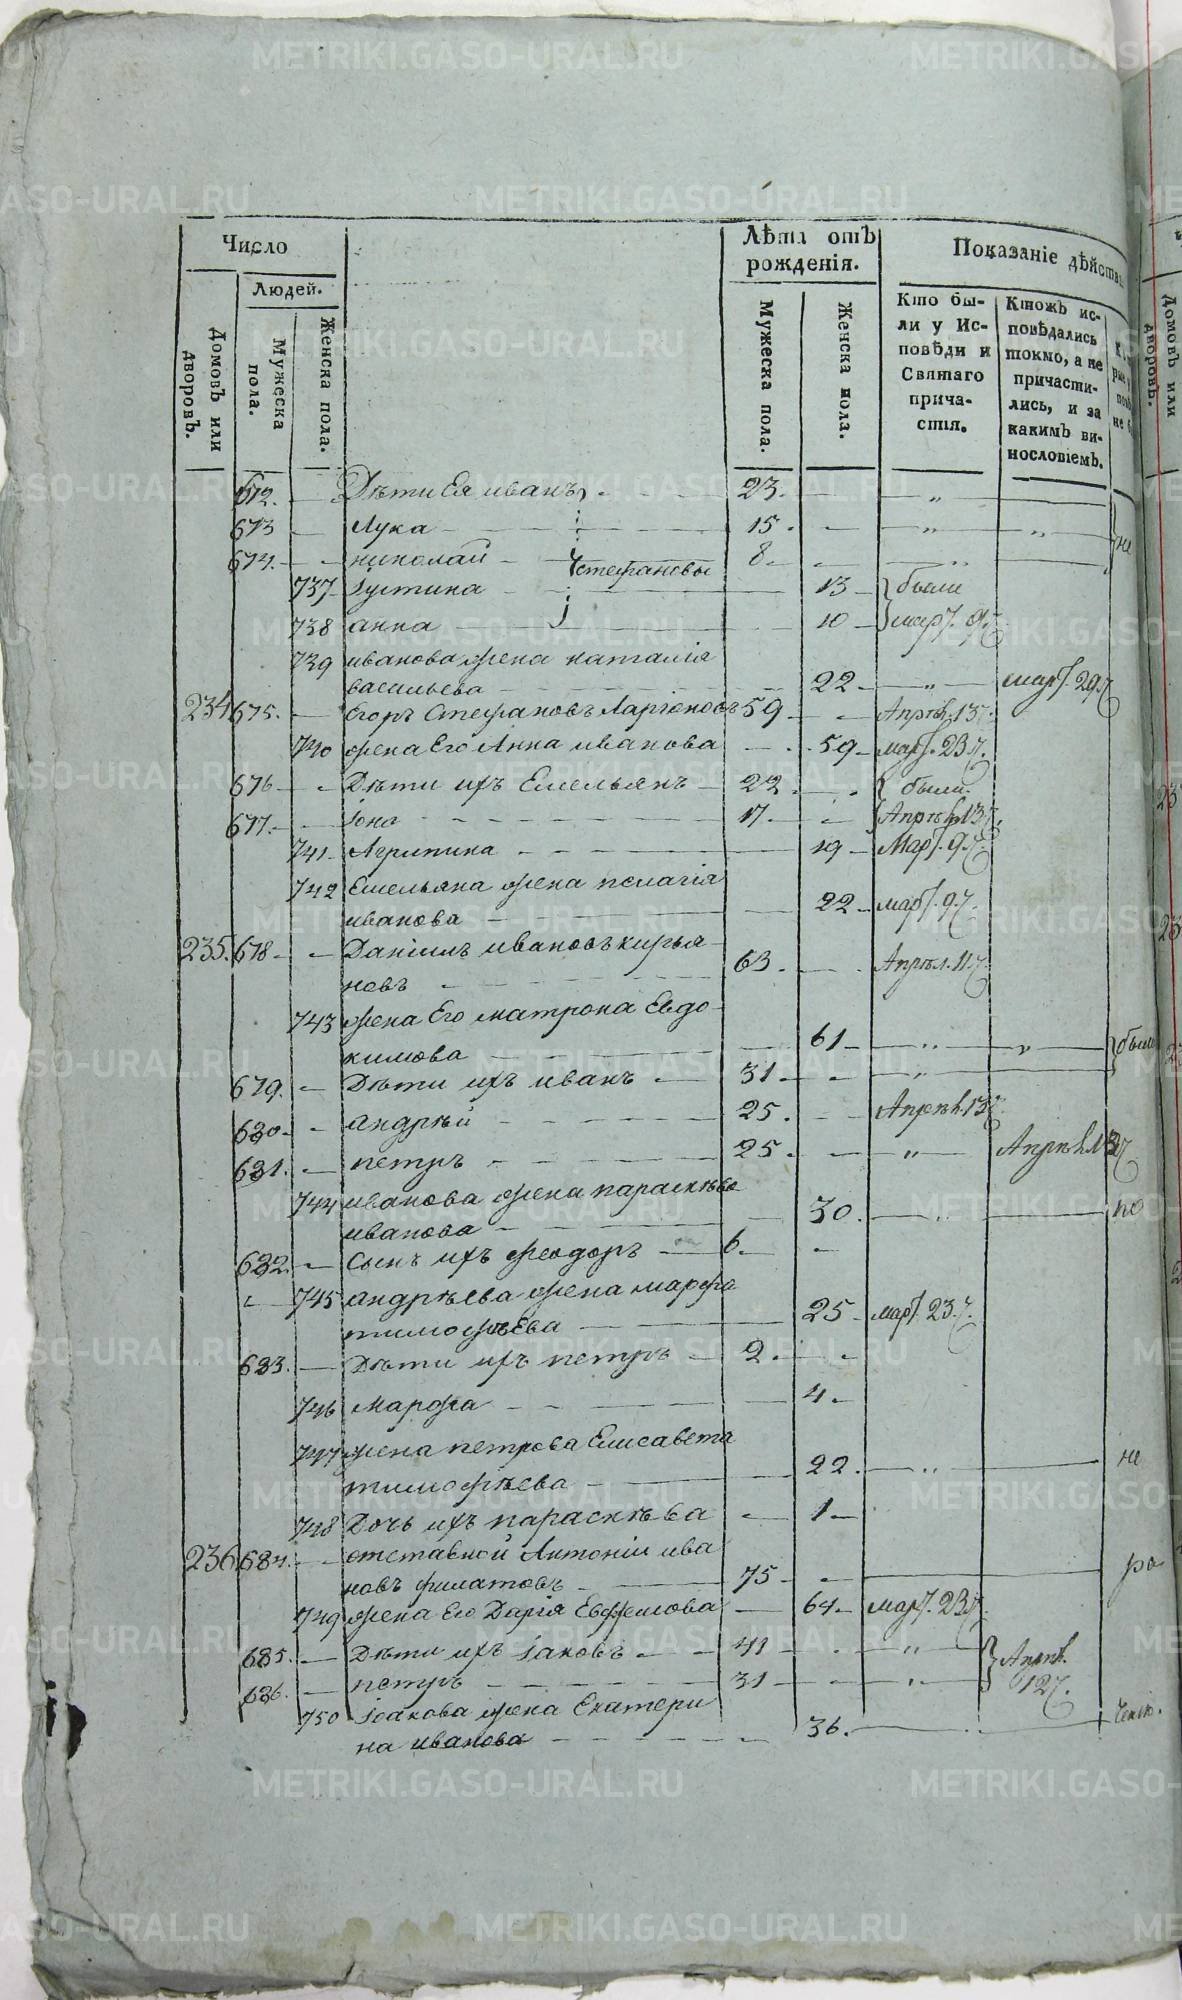 Число
Лѣта отъ рожденія.
Показаніе дѣйства
Людей.
Домовъ или дворовъ.
Мужеска пола.
Женска пола.
Мужеска пола.
Женска пола.
Кто бы-
ли у Ис-
повѣди и
Святаго
прича-
стія.
Ктожъ ис-
повѣдались
токмо, а не
причасти-
лись, и за
какимъ ви-
нословіемъ.
672. — Дѣти Ея иванъ, 23. — „
673 — Лука 15. — „ „ не
674. — николай 8. —
Стефановы
737 Іустина 13 были
738 анна 10 март. 9.
739 иванова жена наталія
васильева 22 — „ март. 29.
234 675. — Егоръ Стефановъ Ларіоновъ 59 — Апрѣл. 13.
740 жена Его Анна иванова — 59 март. 23.
676 — Дѣти ихъ Емельянъ 22 — были
677. — Іона 17. — Апрѣл. 13.
741 Агрипина 19 Март. 9.
742 Емельяна жена пелагія
иванова 22 март. 9.
235. 678 — Даніилъ ивановъ кирья-
новъ 63. — Апрѣл. 11.
743 жена Его матрона Евдо-
кимова 61 — „ „ были
679. — Дѣти ихъ иванъ 31. — „
680. — андрѣй 25. — Апрѣл. 13.
681. — петръ 25. — „ Апрѣл. 13
744 иванова жена параскѣва
иванова 30. по
682. — Сынъ ихъ феодоръ 6. —
745 андрѣева жена марфа
тимофѣева 25 март. 23.
683. — Дѣти ихъ петръ 2. —
746 Марфа 4.
747 жена петрова Елисавета
тимофѣева 22. „ не
748 Дочь ихъ параскѣва — 1
236 684. — отставной Антоній ива
новъ филатовъ 75 — ра
749 жена Его Дарія Евфимова — 64 март. 23.
685. — Дѣти ихъ Іаковъ 41 — „ Апрѣл.
686. — петръ 31 — „ 12.
750 Іакова жена Екатери
на иванова 36.